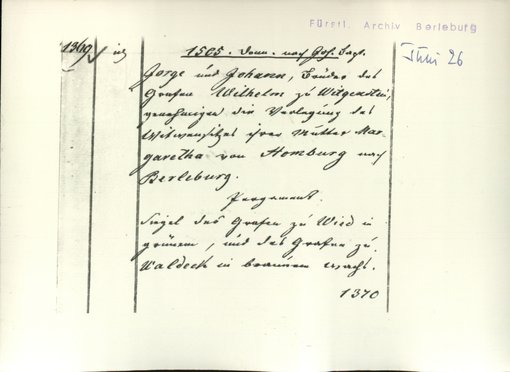 Fürstl. Archiv Berleburg
1369
1505. Donn. nach Joh. Bapt.
Jorge und Johann, Brüder des
Grafen Wilhelm zu Witgenstein,
genehmigen die Verlegung des
Witwensitzes ihrer Mutter Mar-
garetha von Homburg nach
Berleburg.
Pergament.
Siegel des Grafen zu Wied in
grünem, und des Grafen zu
Waldeck in braunem Wachs.
1370